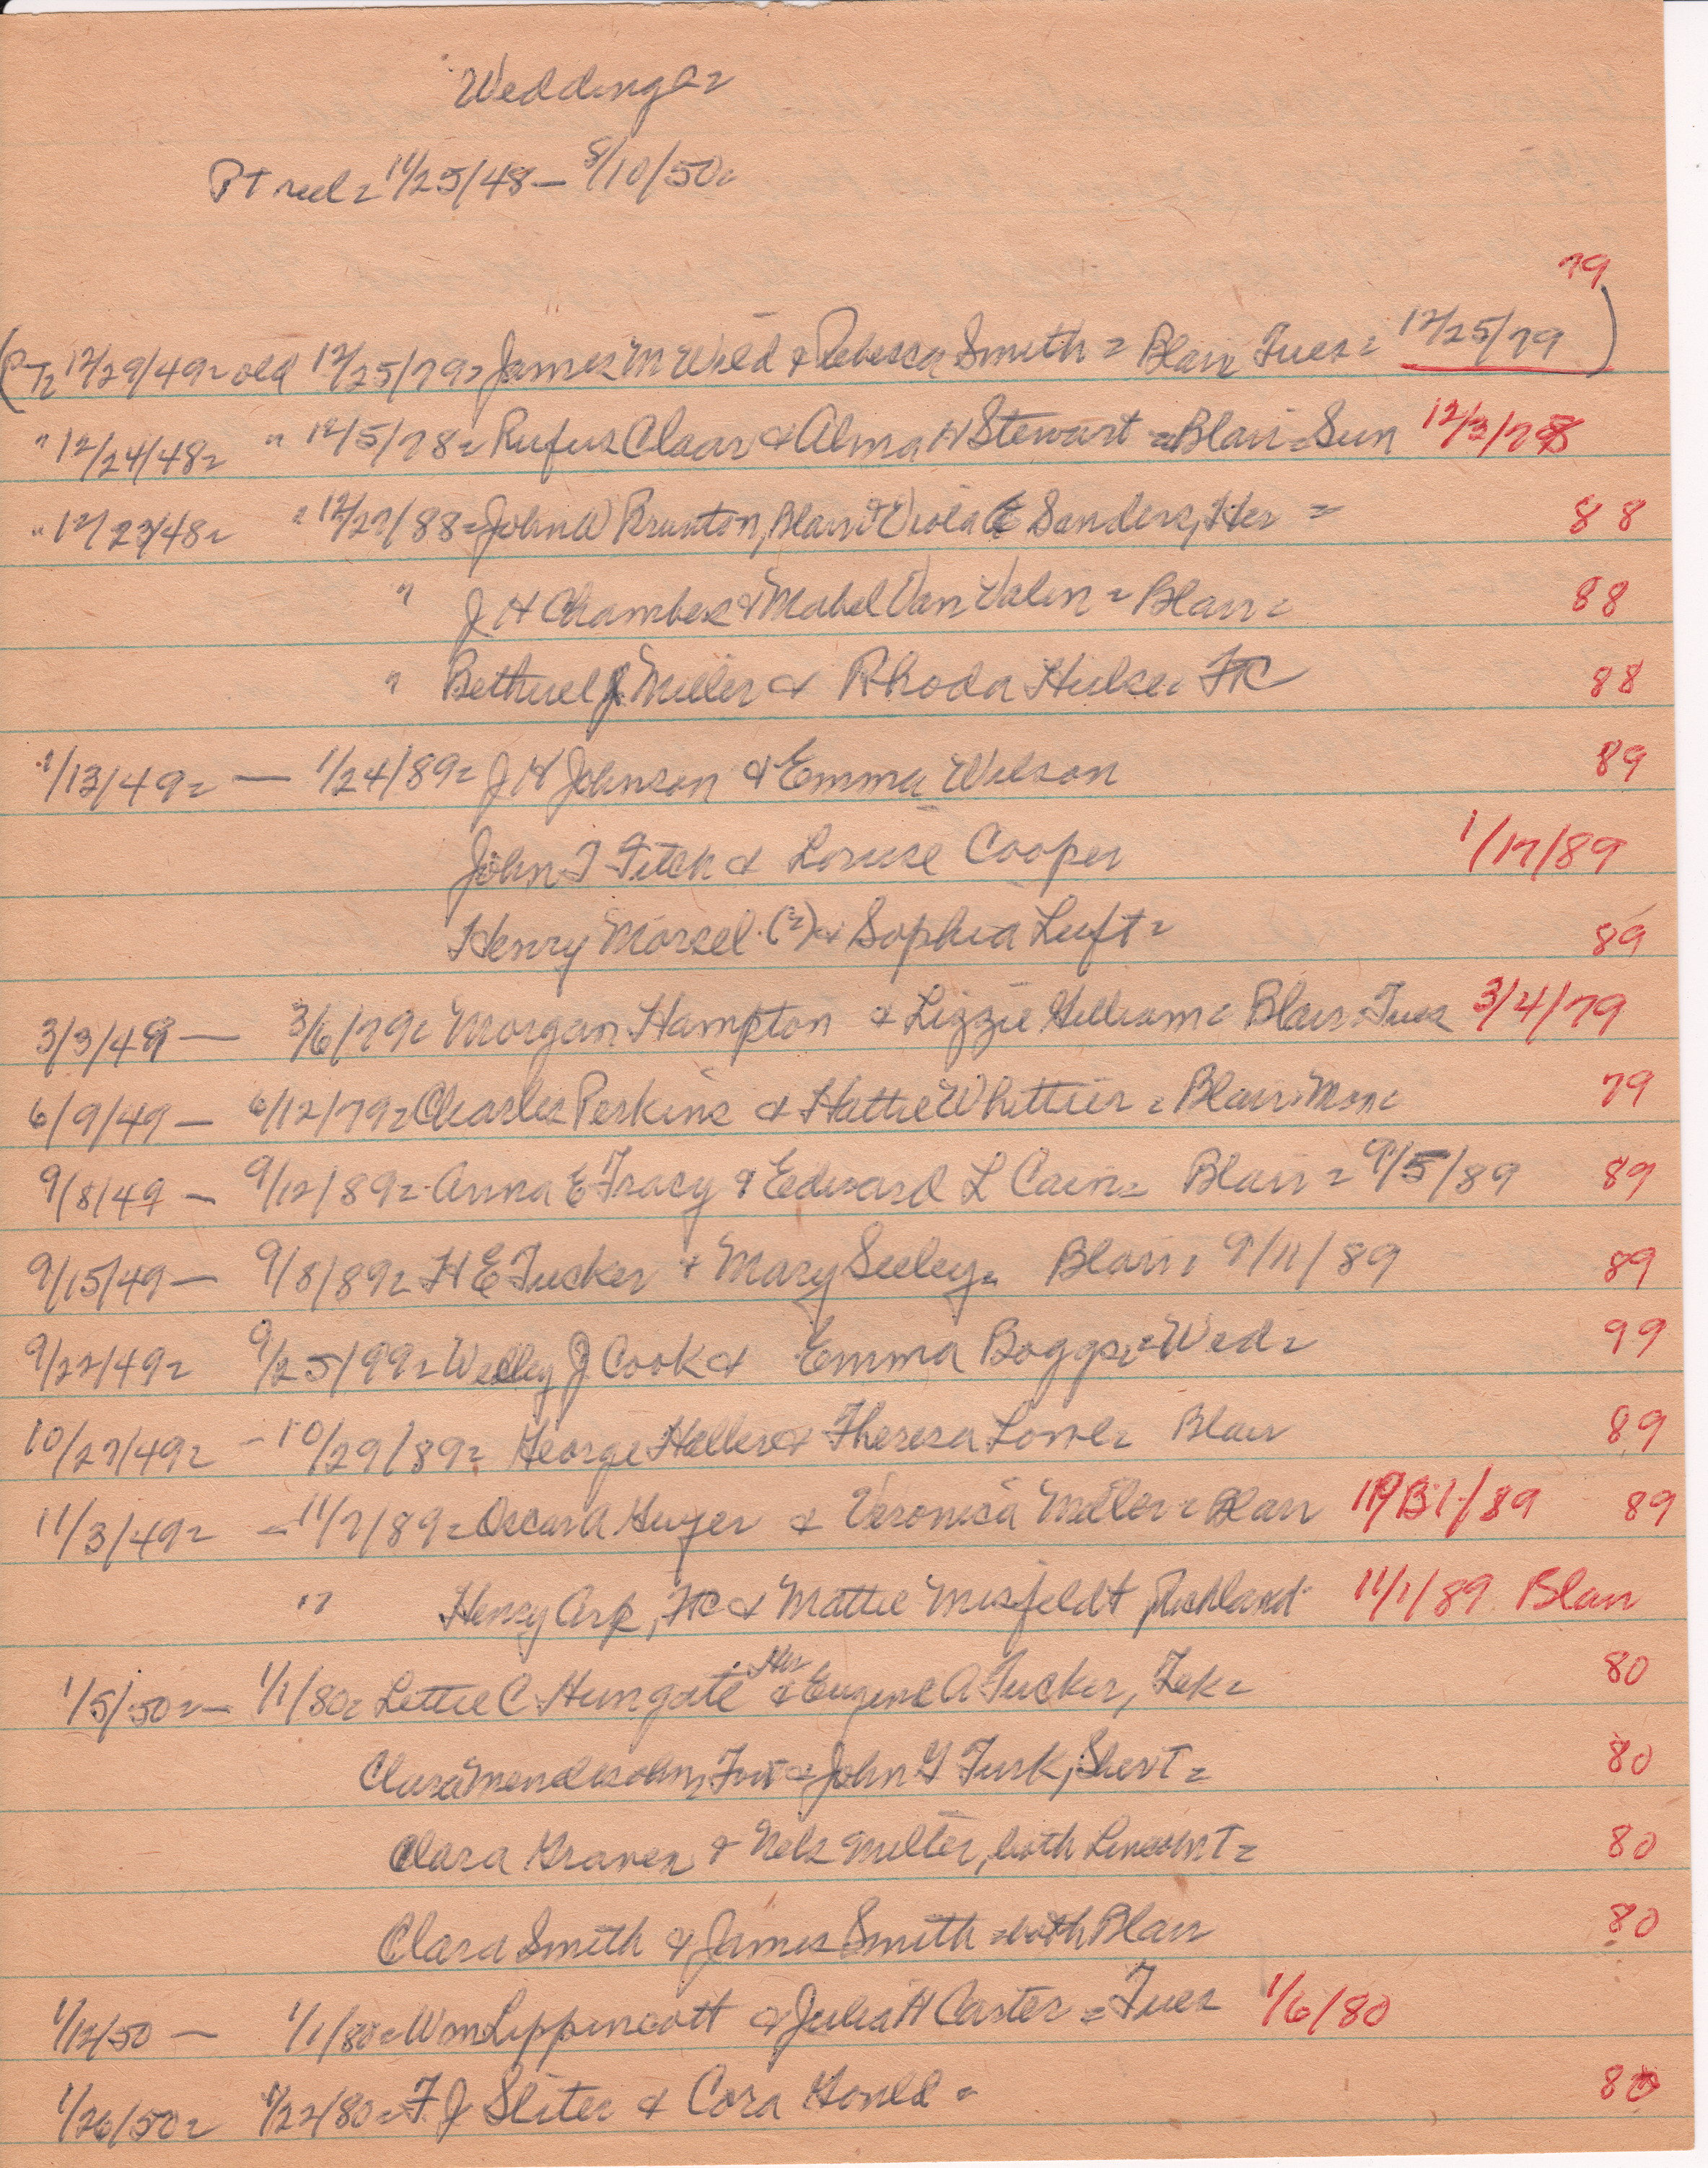 Weddings=
PT reel= 11/25/48 — 8/10/50=
79
(PT= 12/29/49= old 12/25/79= James M Wild & Rebecca Smith = Blair Tues= 12/25/79)
" 12/24/48= " 12/5/78= Rufus Claar & Alma H Stewart = Blair = Sun 12/3/78
" 12/23/48= " 12/27/88= John W Brunton, Blair & Viola E Sanders, Her = 88
" J H Chambers & Mabel Van Valin = Blair = 88
" Bethuel J Miller & Rhoda Hulse= FTC 88
1/13/49= — 1/24/89= J H Johnson & Emma Wilson 89
John T Fitch & Louise Cooper 1/17/89
Henry Morsel (?) & Sophia Luft = 89
3/3/49 — 3/6/79= Morgan Hampton & Lizzie Gilliam= Blair= Tues 3/4/79
6/9/49 — 6/12/79= Charles Perkins & Hattie Whittier = Blair= Mon= 79
9/8/49 — 9/12/89= Anna E Tracy & Edward L Cain= Blair = 9/5/89 89
9/15/49 — 9/8/89= H E Tucker & Mary Seeley= Blair= 9/11/89 89
9/22/49= 9/25/99= Welley J Cook & Emma Boggs= Wed= 99
10/27/49= – 10/29/89= George Haller & Theresa Lowe= Blair 89
11/3/49= – 11/7/89= Oscar A Guyer & Veronica Miller = Blair 89
" Henry Arp, FtC & Mattie Misfeldt, Richland 11/1/89 Blair
1/5/50= — 1/1/80= Lettie C Hungate Her & Eugene A Tucker, Tek= 80
Clara Mendelsohn, & John G Turk, Sher T = 80
Clara Graner & Nels Miller, both Lincoln T = 80
Clara Smith & James Smith = both Blair 80
1/12/50 — 1/1/80= Wm Lippincott & Julia H Carter = Tues 1/6/80
1/26/50= 1/22/80= F. J Sliter & Cora Gould = 80